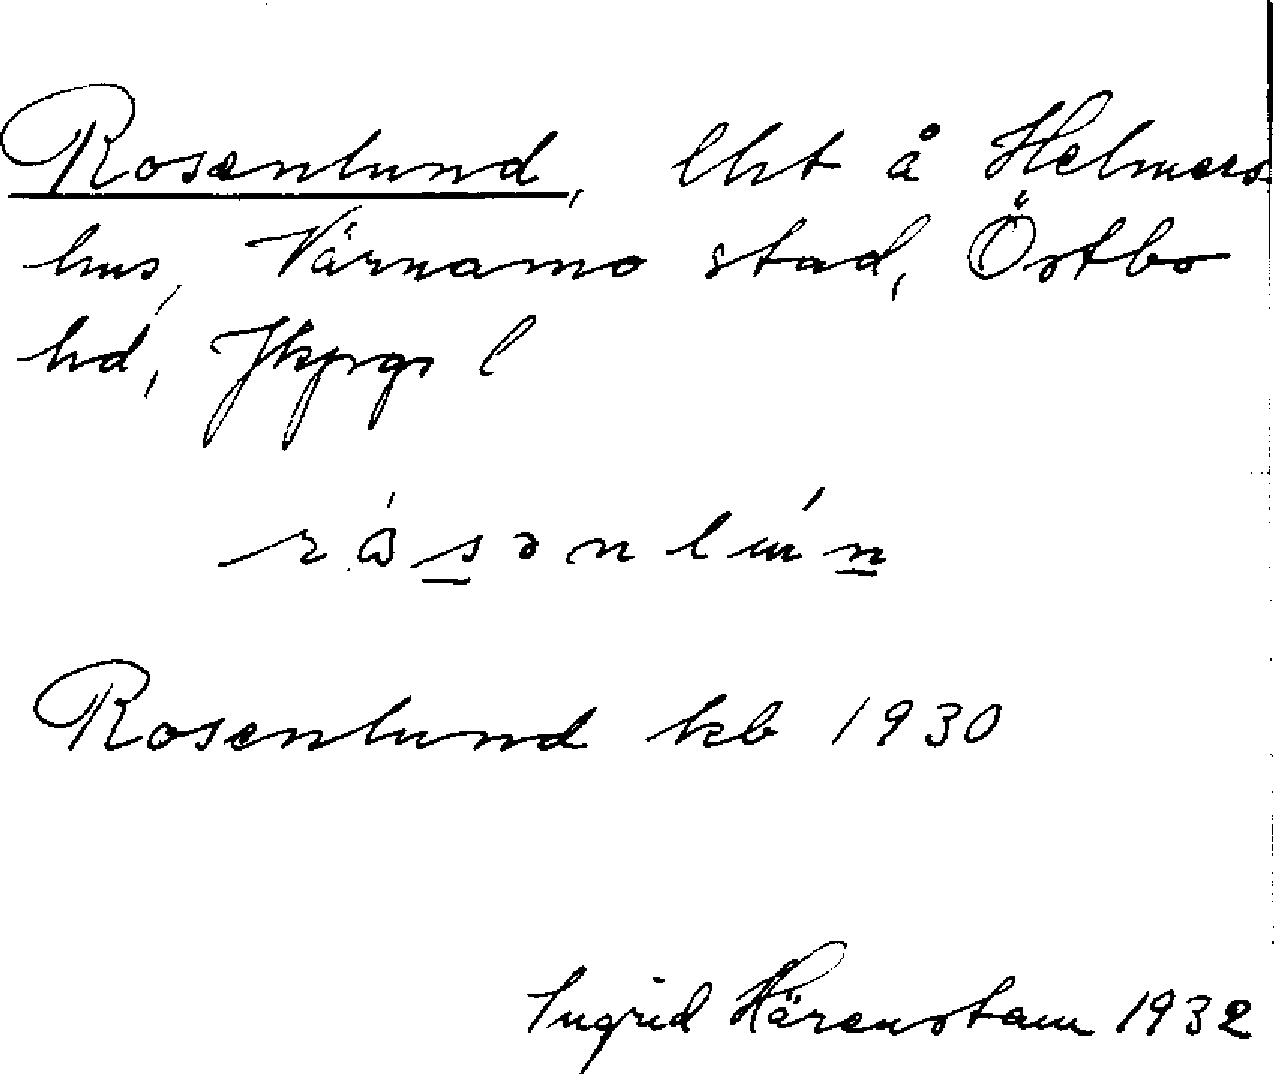 Rosenlund, lht å Helmers-
hus, Värnamo stad, Östbo
hd, Jkpgs l
rósənlún
Rosenlund kb 1930
Ingrid Härenstam 1932